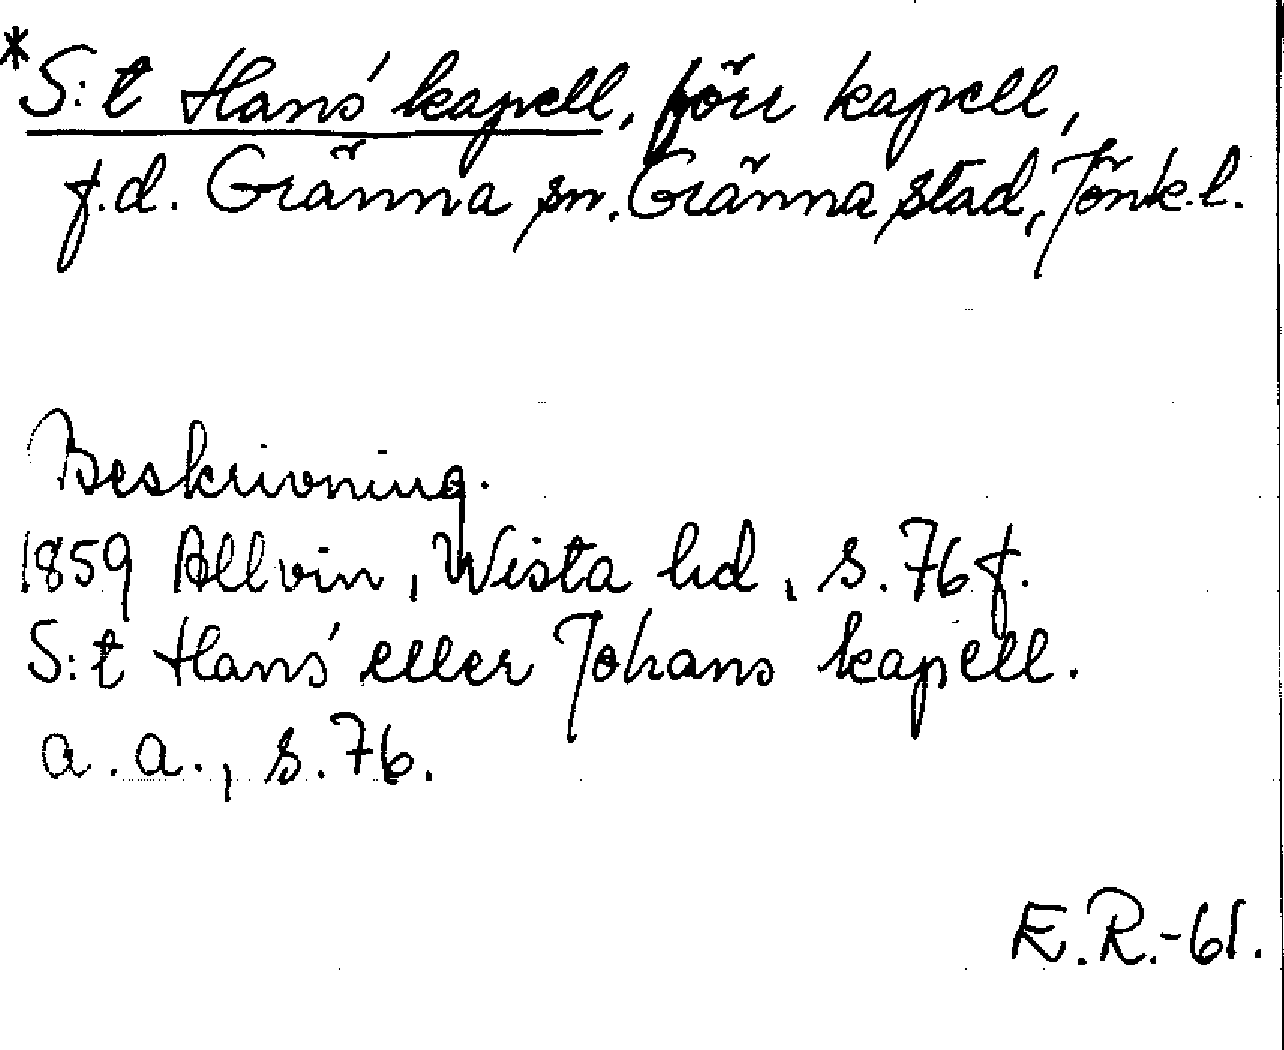 *S:t Hans' kapell, förr kapell,
f.d. Gränna sn, Gränna stad, Jönk.l.
Beskrivning.
1859 Allvin, Wista hd, s. 76 f.
S:t Hans' eller Johans kapell.
a.a., s. 76.
E.R.-61.